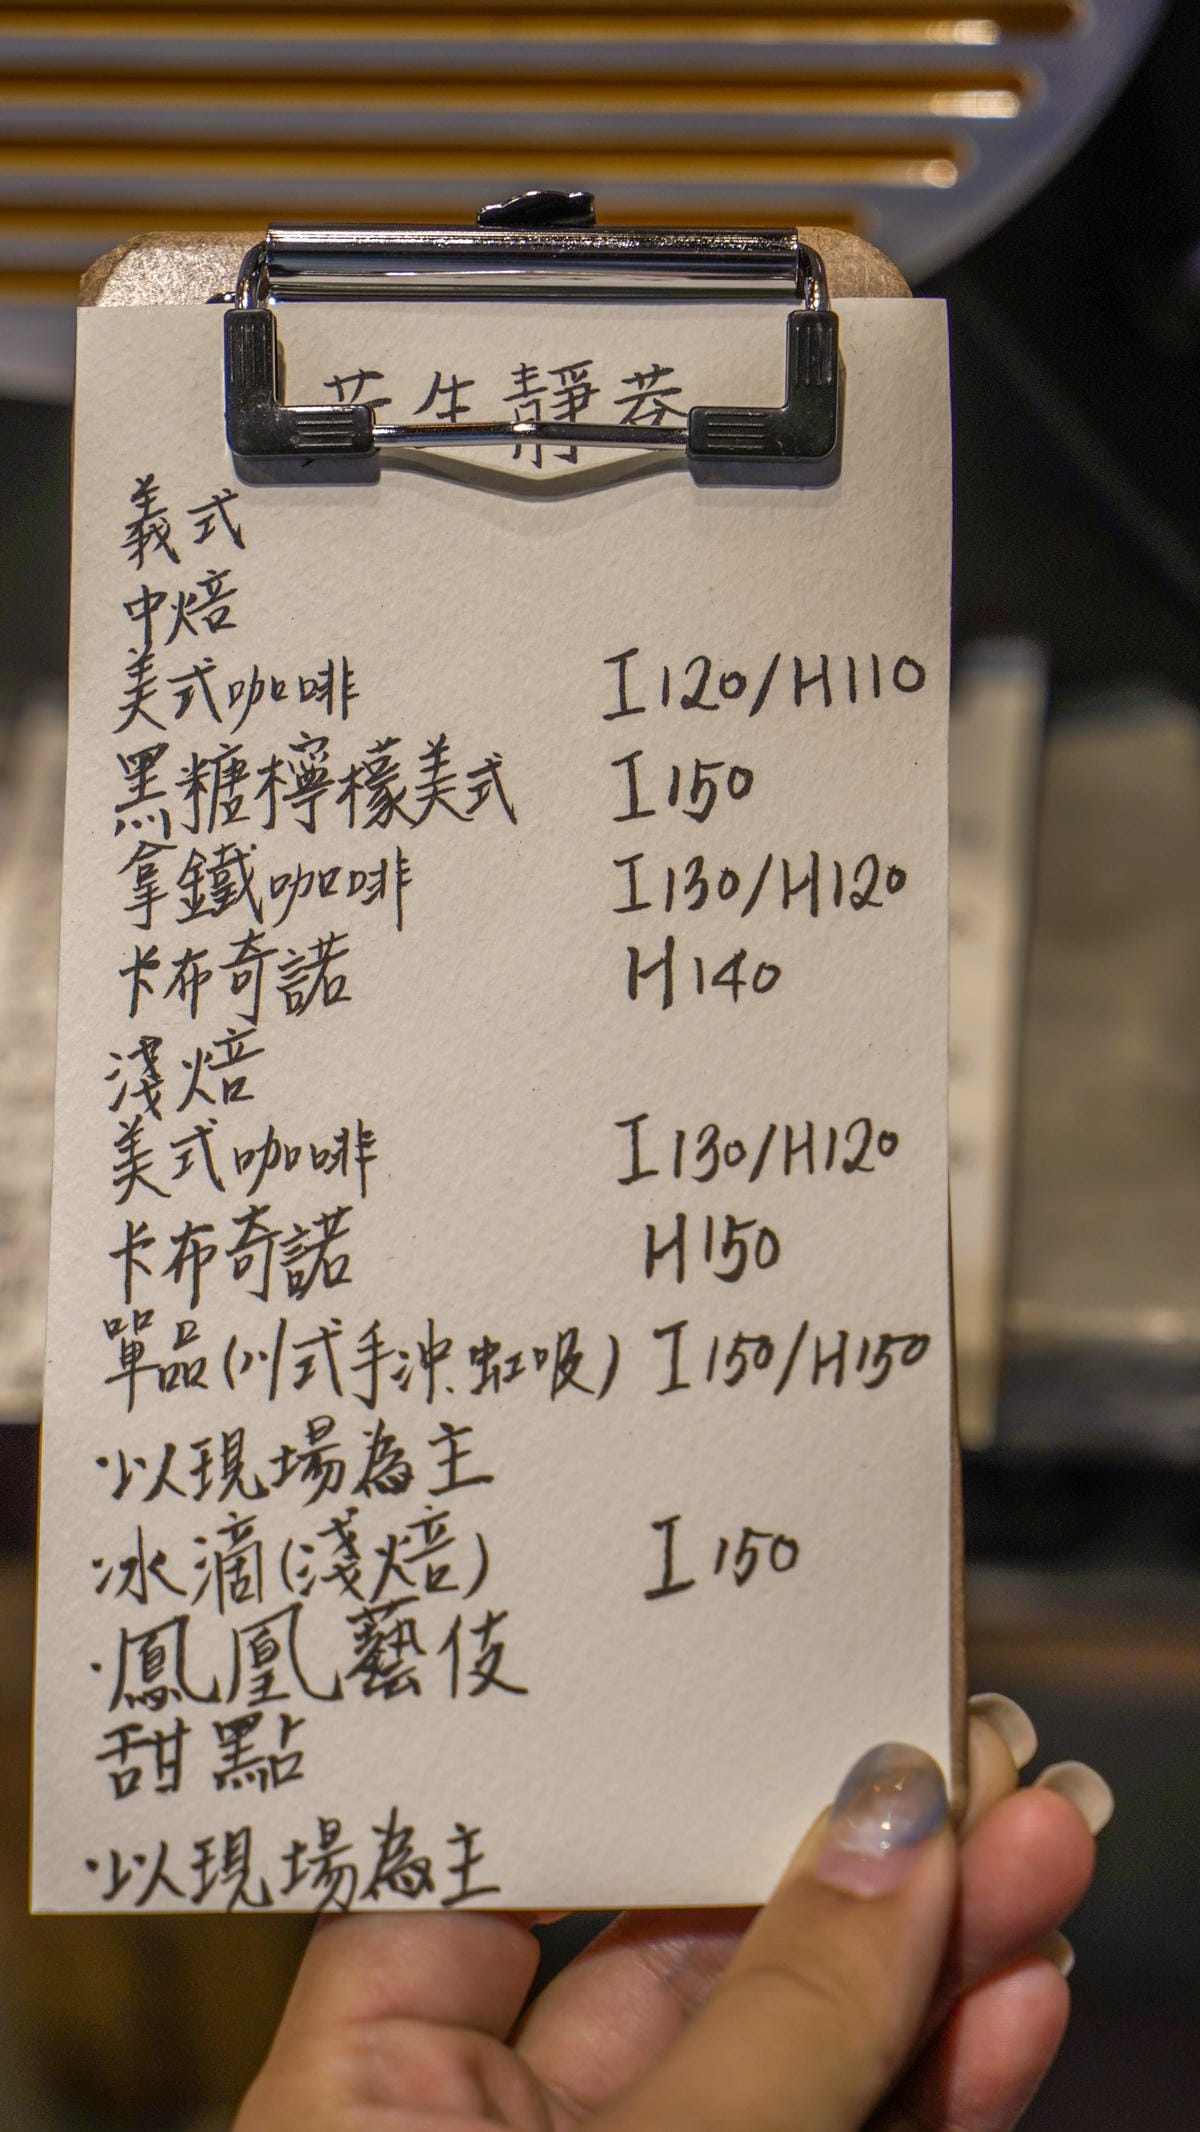 生靜
義式
中焙
美式咖啡 I120/H110
黑糖檸檬美式 I150
拿鐵咖啡 I130/H120
卡布奇諾 H140
淺焙
美式咖啡 I130/H120
卡布奇諾 H150
單品(川式手沖、虹吸) I150/H150
以現場為主
冰滴(淺焙) I150
鳳凰藝伎
甜點
以現場為主